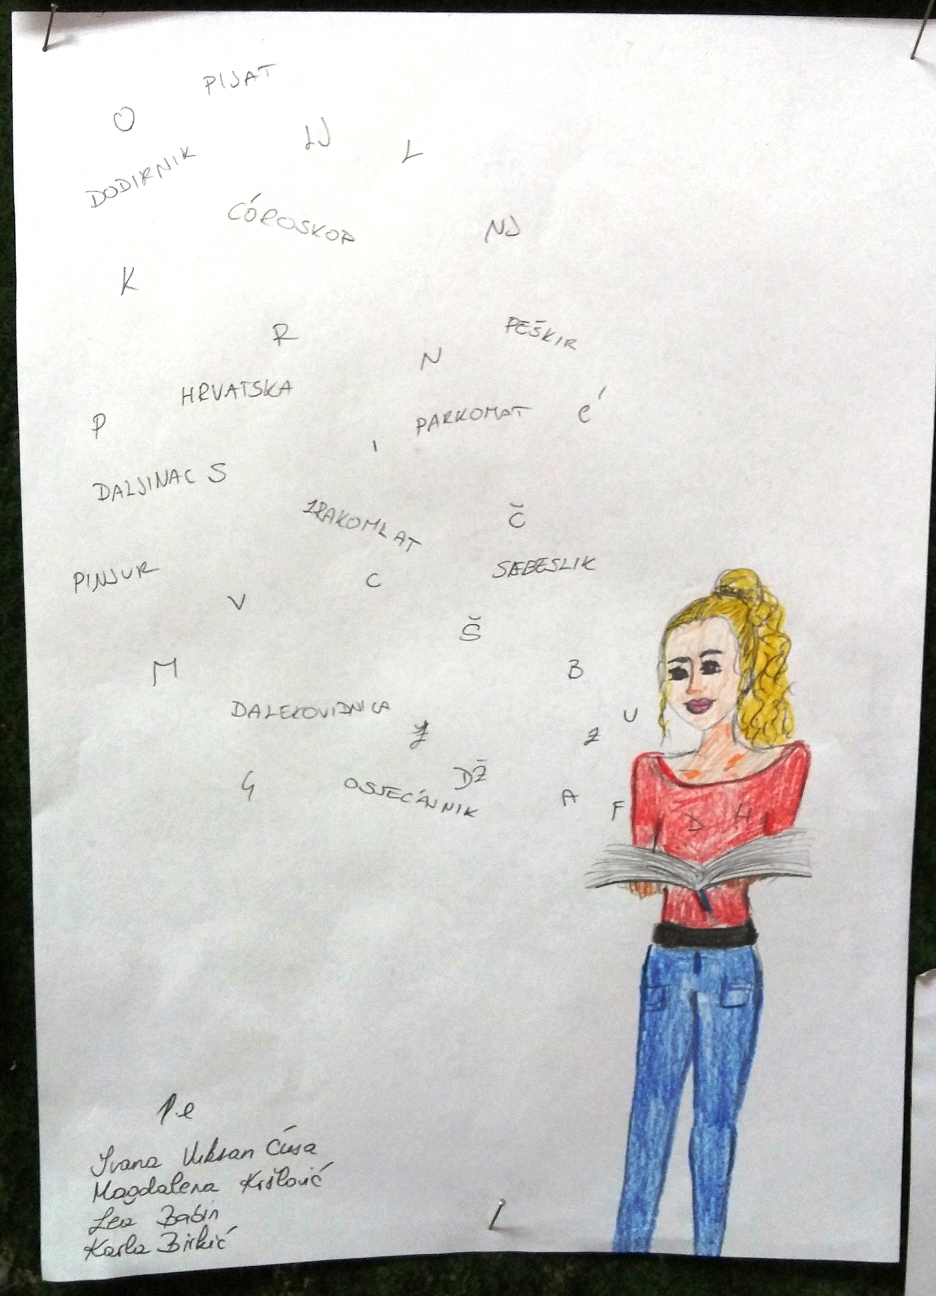 PIJAT
O
LJ
L
DODIRNIK
ĆOROSKOP
NJ
K
R
PEŠKIR
N
HRVATSKA
PARKOMAT
é
P
I
DALJINAC S
ZRAKOMLAT
Č
PINJUR
C
SEBESLIK
V
Š
M
B
DALEKOVIDNICA
U
Ž
Z
DŽ
G
OSJEĆAJNIK
A
F
D H
1.e
Ivana Viksan Ćusa
Magdalena Krišlović
Lea Babin
Karla Birkić